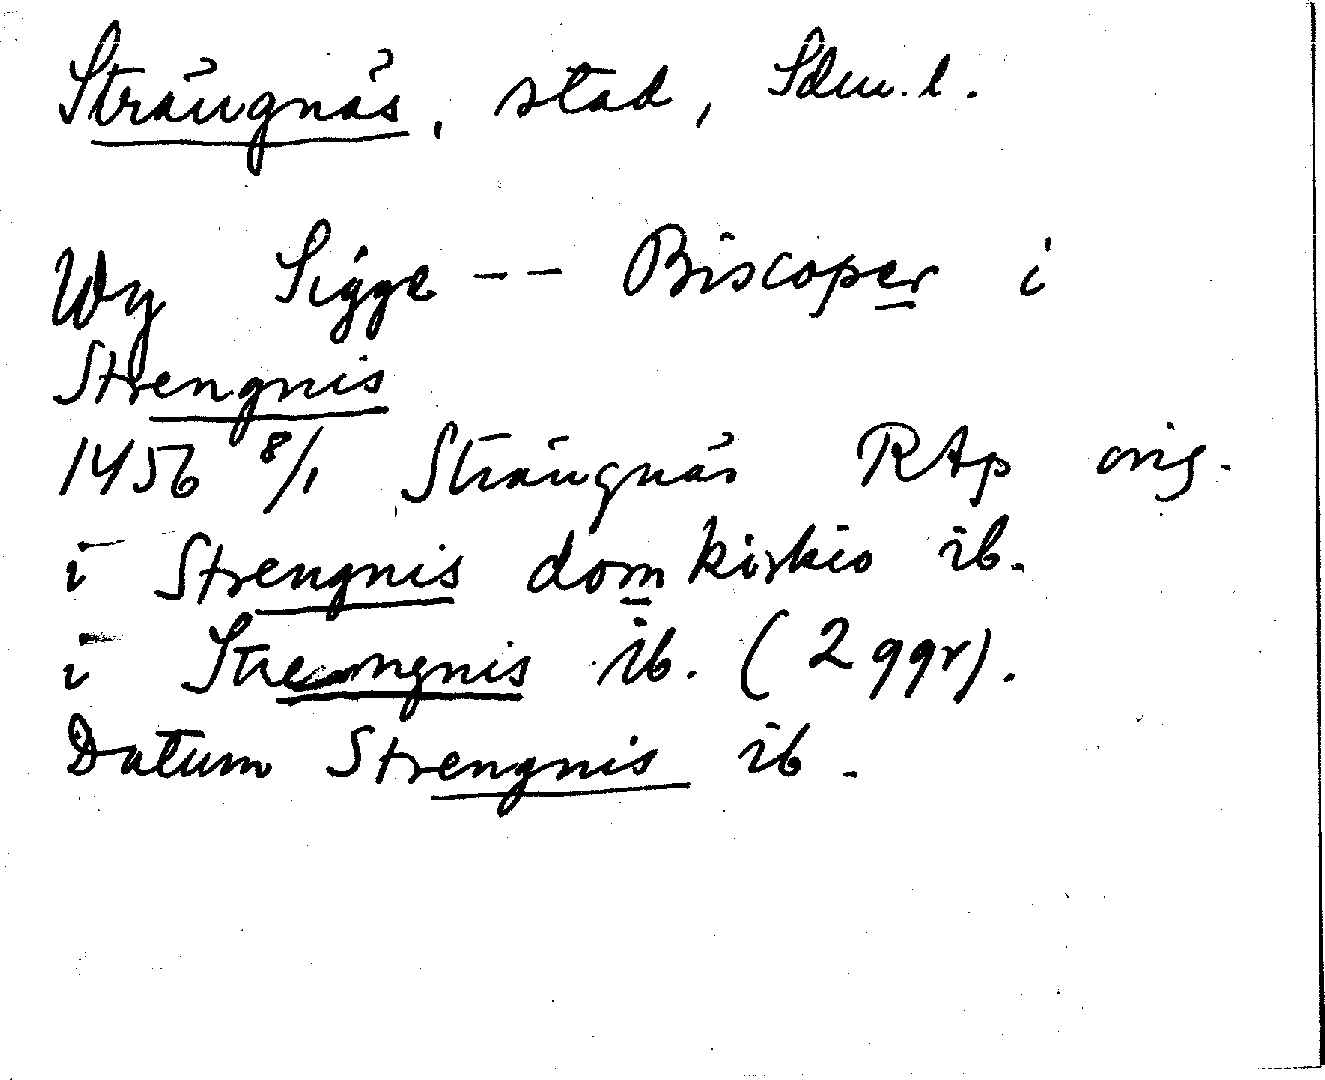 Strängnäs, stad, Sdm. l.
Wy Sigge -- Biscoper i
Strengnis
1456 8/1 Strängnäs RAp orig.
i Strengnis domkirkio ib.
i Strengnis ib. (2 ggr).
Datum Strengnis ib.